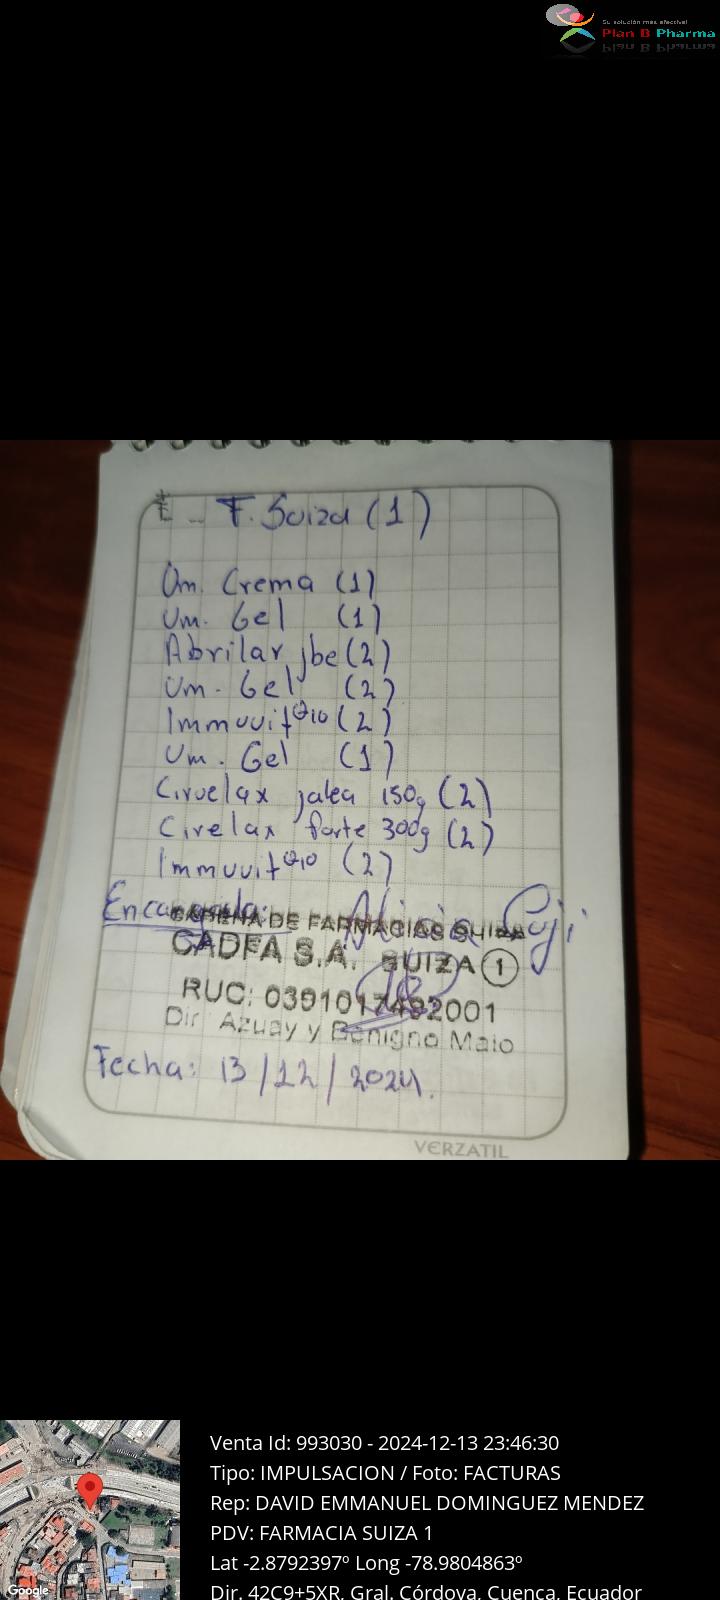 Su solución más efectiva!
Plan B Pharma
F. Suiza (1)
Um. Crema (1)
Um. Gel (1)
Abrilar jbe (2)
Um. Gel (2)
Immuvit Q10 (2)
Um. Gel (1)
Ciruelax jalea 150g (2)
Cirelax forte 300g (2)
Immuvit Q10 (2)
Encargada:
CADENA DE FARMACIAS SUIZA
CADFA S.A. SUIZA 1
RUC: 0391017492001
Dir: Azuay y Benigno Malo
Fecha: 13/12/2024.
VERZATIL
Google
Venta Id: 993030 - 2024-12-13 23:46:30
Tipo: IMPULSACION / Foto: FACTURAS
Rep: DAVID EMMANUEL DOMINGUEZ MENDEZ
PDV: FARMACIA SUIZA 1
Lat -2.8792397º Long -78.9804863º
Dir. 42C9+5XR, Gral. Córdova, Cuenca, Ecuador